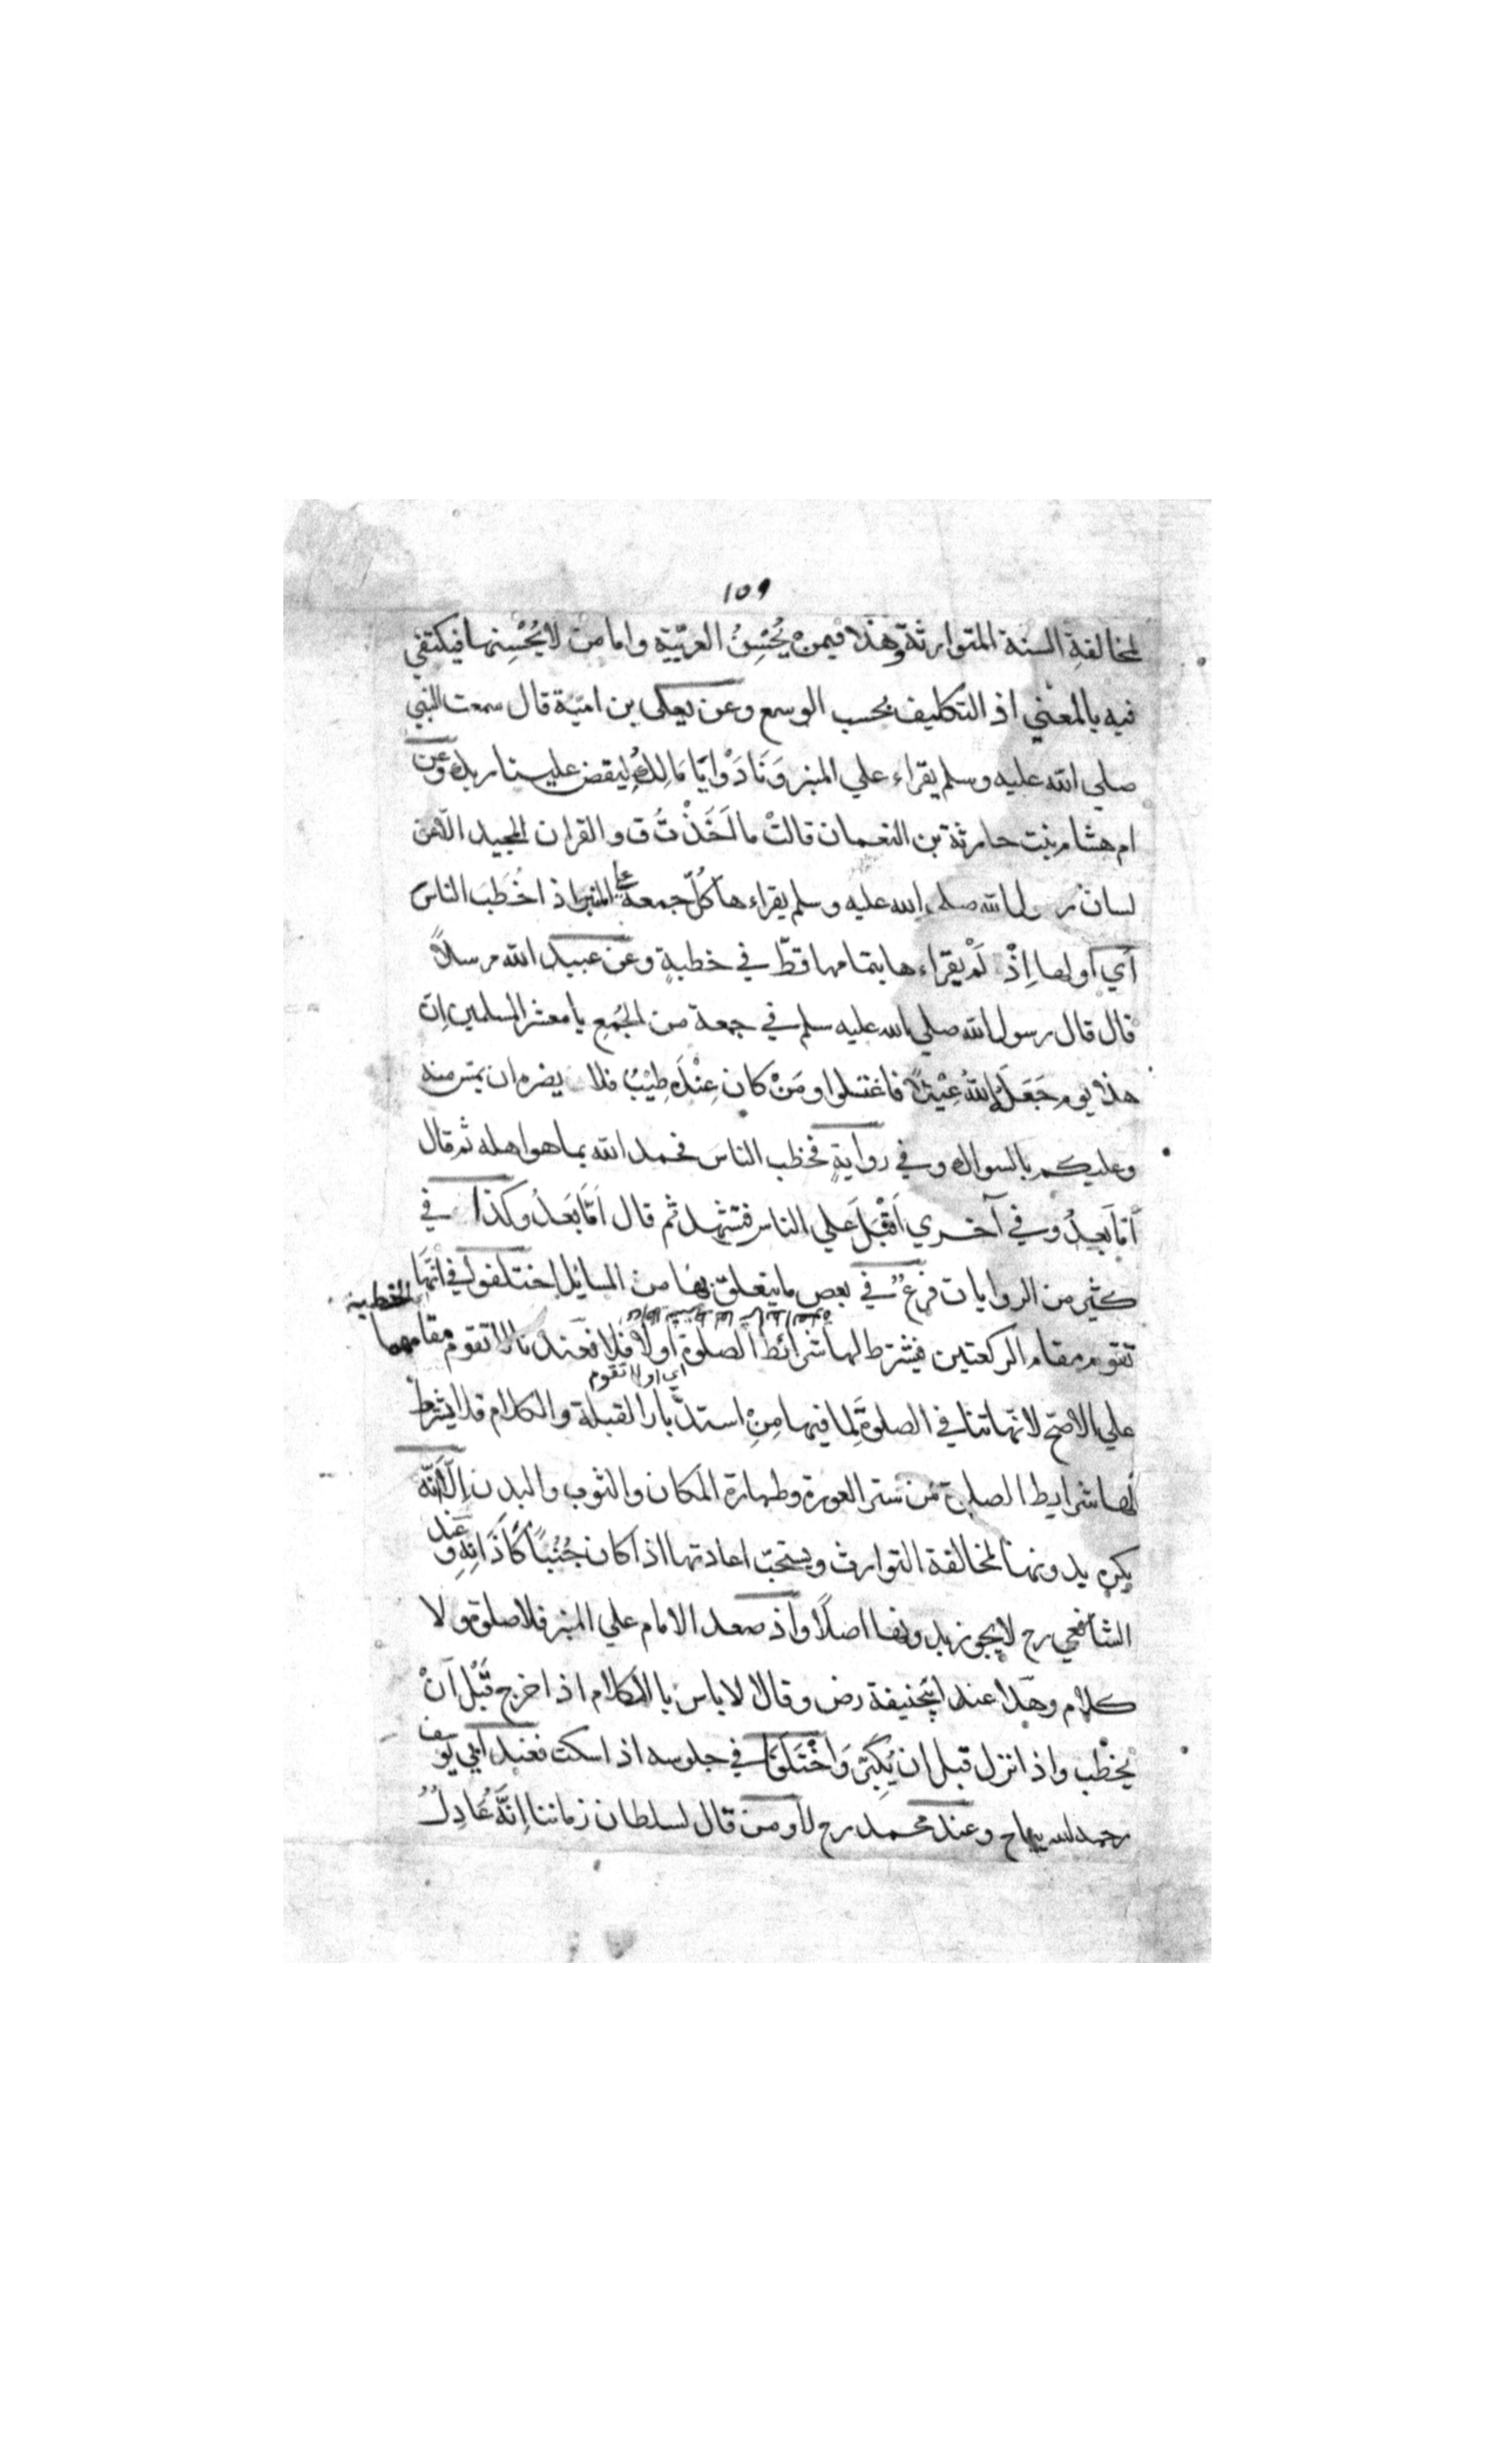 ١٥٩
لمخالفةِ السنة المتوارثة وهذا فيمنْ يُحْسِنُ العربّيةِ واما من لا يُحْسِنها فيكتفي
فيه بالمعني اذ التكليف بحسب الوسع وعن يعلى بن اميّة قال سمعت النبي
صلي الله عليه وسلم يقراء علي المنبر وَنَادَوْا يَا مَالِكُ لِيقض علينا ربك وعن
ام هشام بنت حارثة بن النعمان قالتْ ما اَخَذْتُ ق والقران المجيد الا من
لسان رسول الله صلي الله عليه وسلم يقراءها كُلّ جمعة علي المنبر اذا خَطبَ الناس
أي اولها اِذْ لَمْ يقراءها بتمامها قطّ في خطبةٍ وعن عبيد الله مرسلاً
قال قال رسول الله صلي الله عليه سلم في جمعة من الجُمَعِ يا معشر المسلمين اِنّ
هذا يوم جَعَلَهُ اللهُ عِيْدًا فاغتسلوا ومَنْ كان عِنْدَه طِيْبٌ فلا يضره ان يمس منه
وعليكم بالسواك وفي روايةٍ فخطب الناس فحمد الله بما هو اهله ثم قال
اَمّا بَعدُ وفي آخري اَقْبَلَ علي الناس فتشهد ثم قال اَمَّا بَعدُ وكذا في
كثير من الروايات فرعٌ في بعض ما يتعلق بها من المسايل اختلفوا في انَّها الخطبة
تقوم مقام الركعتين فيشترط لها شرائط الصلوة او لا فلا فعندنا لا تقوم مقامهما
اي او لا تقوم
علي الاصح لانّها تنافي الصلوة لِما فيها مِنْ استدبار القبلة والكلام فلا يشترط
لها شرايط الصلوة من ستر العورة وطهارة المكان والثوب والبدن اِلّا اَنّه
يكره بدونها لمخالفة التوارث ويستحبّ اعادتها اذا كان جُنُبًا كَاَذَانِهِ وعند
الشافعي رح لا يجوز بدونها اصلًا واذ صعد الامام علي المنبر فلا صلوة ولا
كلام وهذا عند ابيحنيفة رض وقالا لا باس بالكلام اذا خرج قَبْل اَنْ
يخطب واذا نزل قبل ان يُكبّرَ وَاخْتَلَفَا في جلوسه اذا سكت فعند ابي يوسف
رحمه الله يباح وعند محمد رح لا ومن قال لسلطان زماننا اِنَّهُ عَادِلٌ